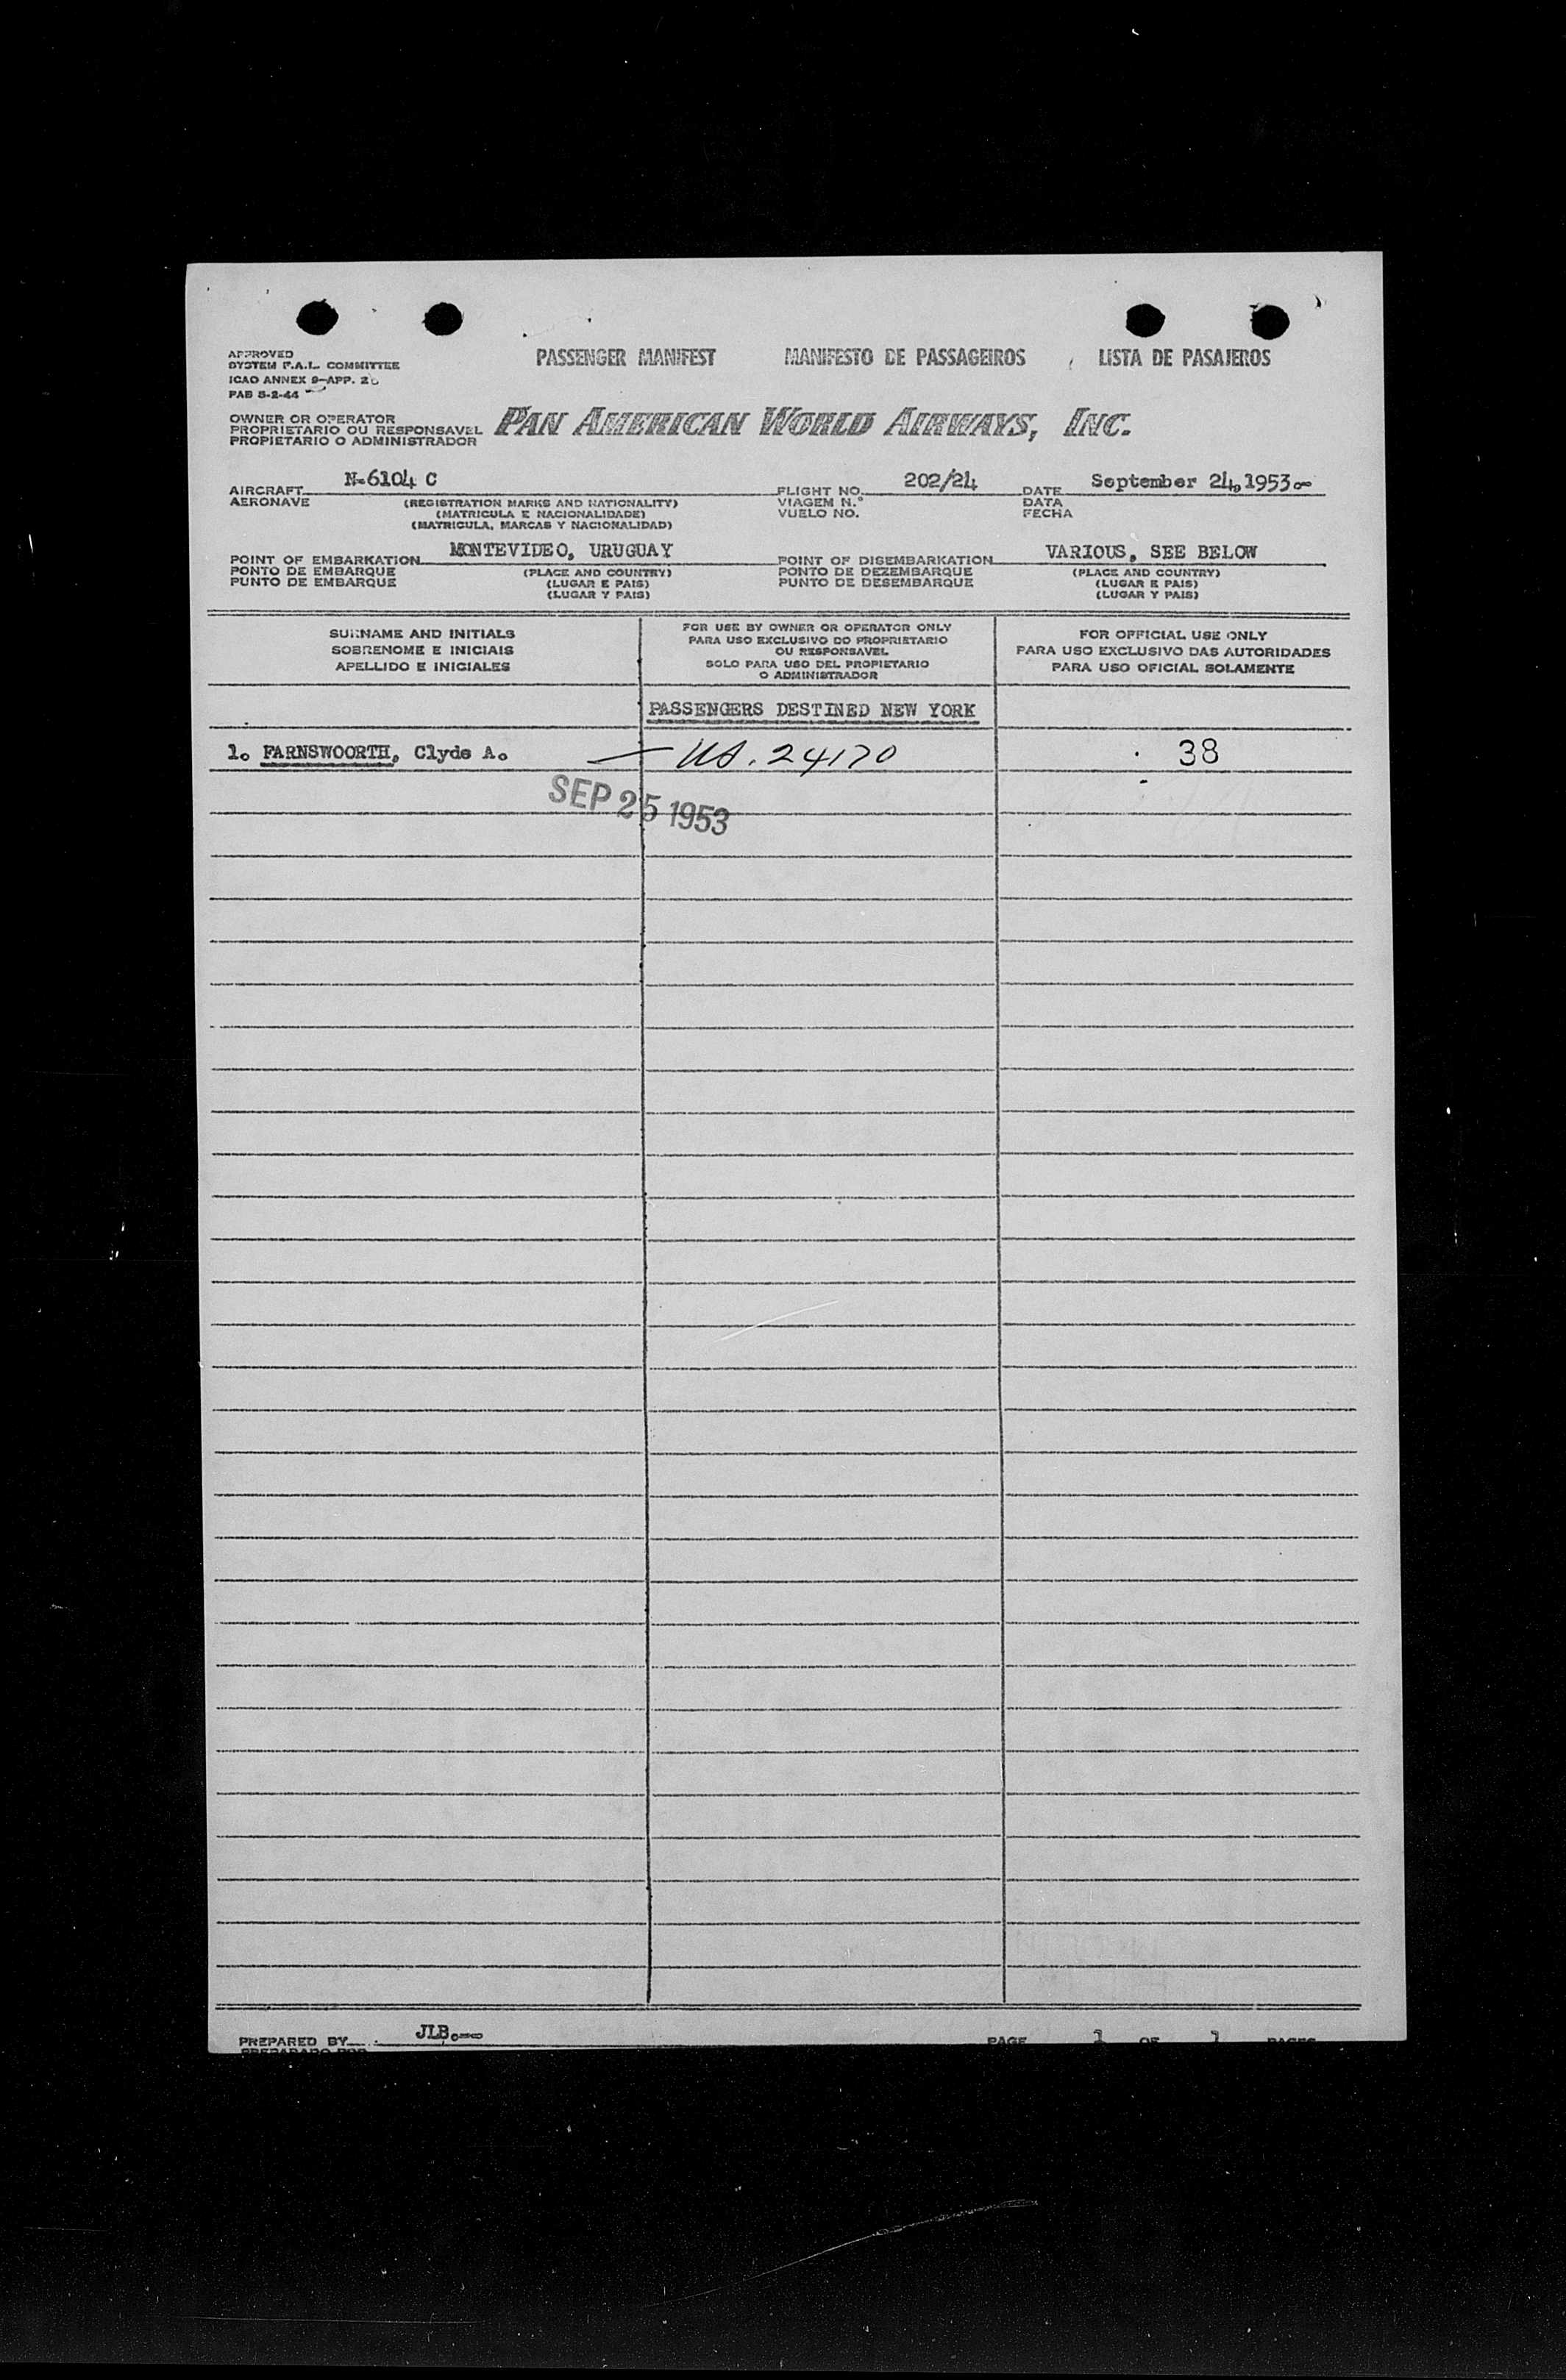 PASSENGER MANIFEST MANIFESTO DE PASSAGEIROS LISTA DE PASAJEROS
APPROVED
SYSTEM F.A.L. COMMITTEE
ICAO ANNEX 9-APP. 2
PAB 5-2-44
OWNER OR OPERATOR
PROPRIETARIO OU RESPONSAVEL
PROPIETARIO O ADMINISTRADOR
PAN AMERICAN WORLD AIRWAYS, INC.
AIRCRAFT N-6104 C FLIGHT NO. 202/24 DATE September 24, 1953.-
AERONAVE (REGISTRATION MARKS AND NATIONALITY) VIAGEM N.º DATA
(MATRICULA E NACIONALIDADE) VUELO NO. FECHA
(MATRICULA, MARCAS Y NACIONALIDAD)
POINT OF EMBARKATION MONTEVIDEO, URUGUAY POINT OF DISEMBARKATION VARIOUS, SEE BELOW
PONTO DE EMBARQUE (PLACE AND COUNTRY) PONTO DE DEZEMBARQUE (PLACE AND COUNTRY)
PUNTO DE EMBARQUE (LUGAR E PAIS) PUNTO DE DESEMBARQUE (LUGAR E PAIS)
(LUGAR Y PAIS) (LUGAR Y PAIS)
SURNAME AND INITIALS
SOBRENOME E INICIAIS
APELLIDO E INICIALES
FOR USE BY OWNER OR OPERATOR ONLY
PARA USO EXCLUSIVO DO PROPRIETARIO
OU RESPONSAVEL
SOLO PARA USO DEL PROPIETARIO
O ADMINISTRADOR
FOR OFFICIAL USE ONLY
PARA USO EXCLUSIVO DAS AUTORIDADES
PARA USO OFICIAL SOLAMENTE
PASSENGERS DESTINED NEW YORK
1. FARNSWOORTH, Clyde A. — US. 24170 38
SEP 25 1953
PREPARED BY JLB.-- PAGE 1 OF 1 PAGES